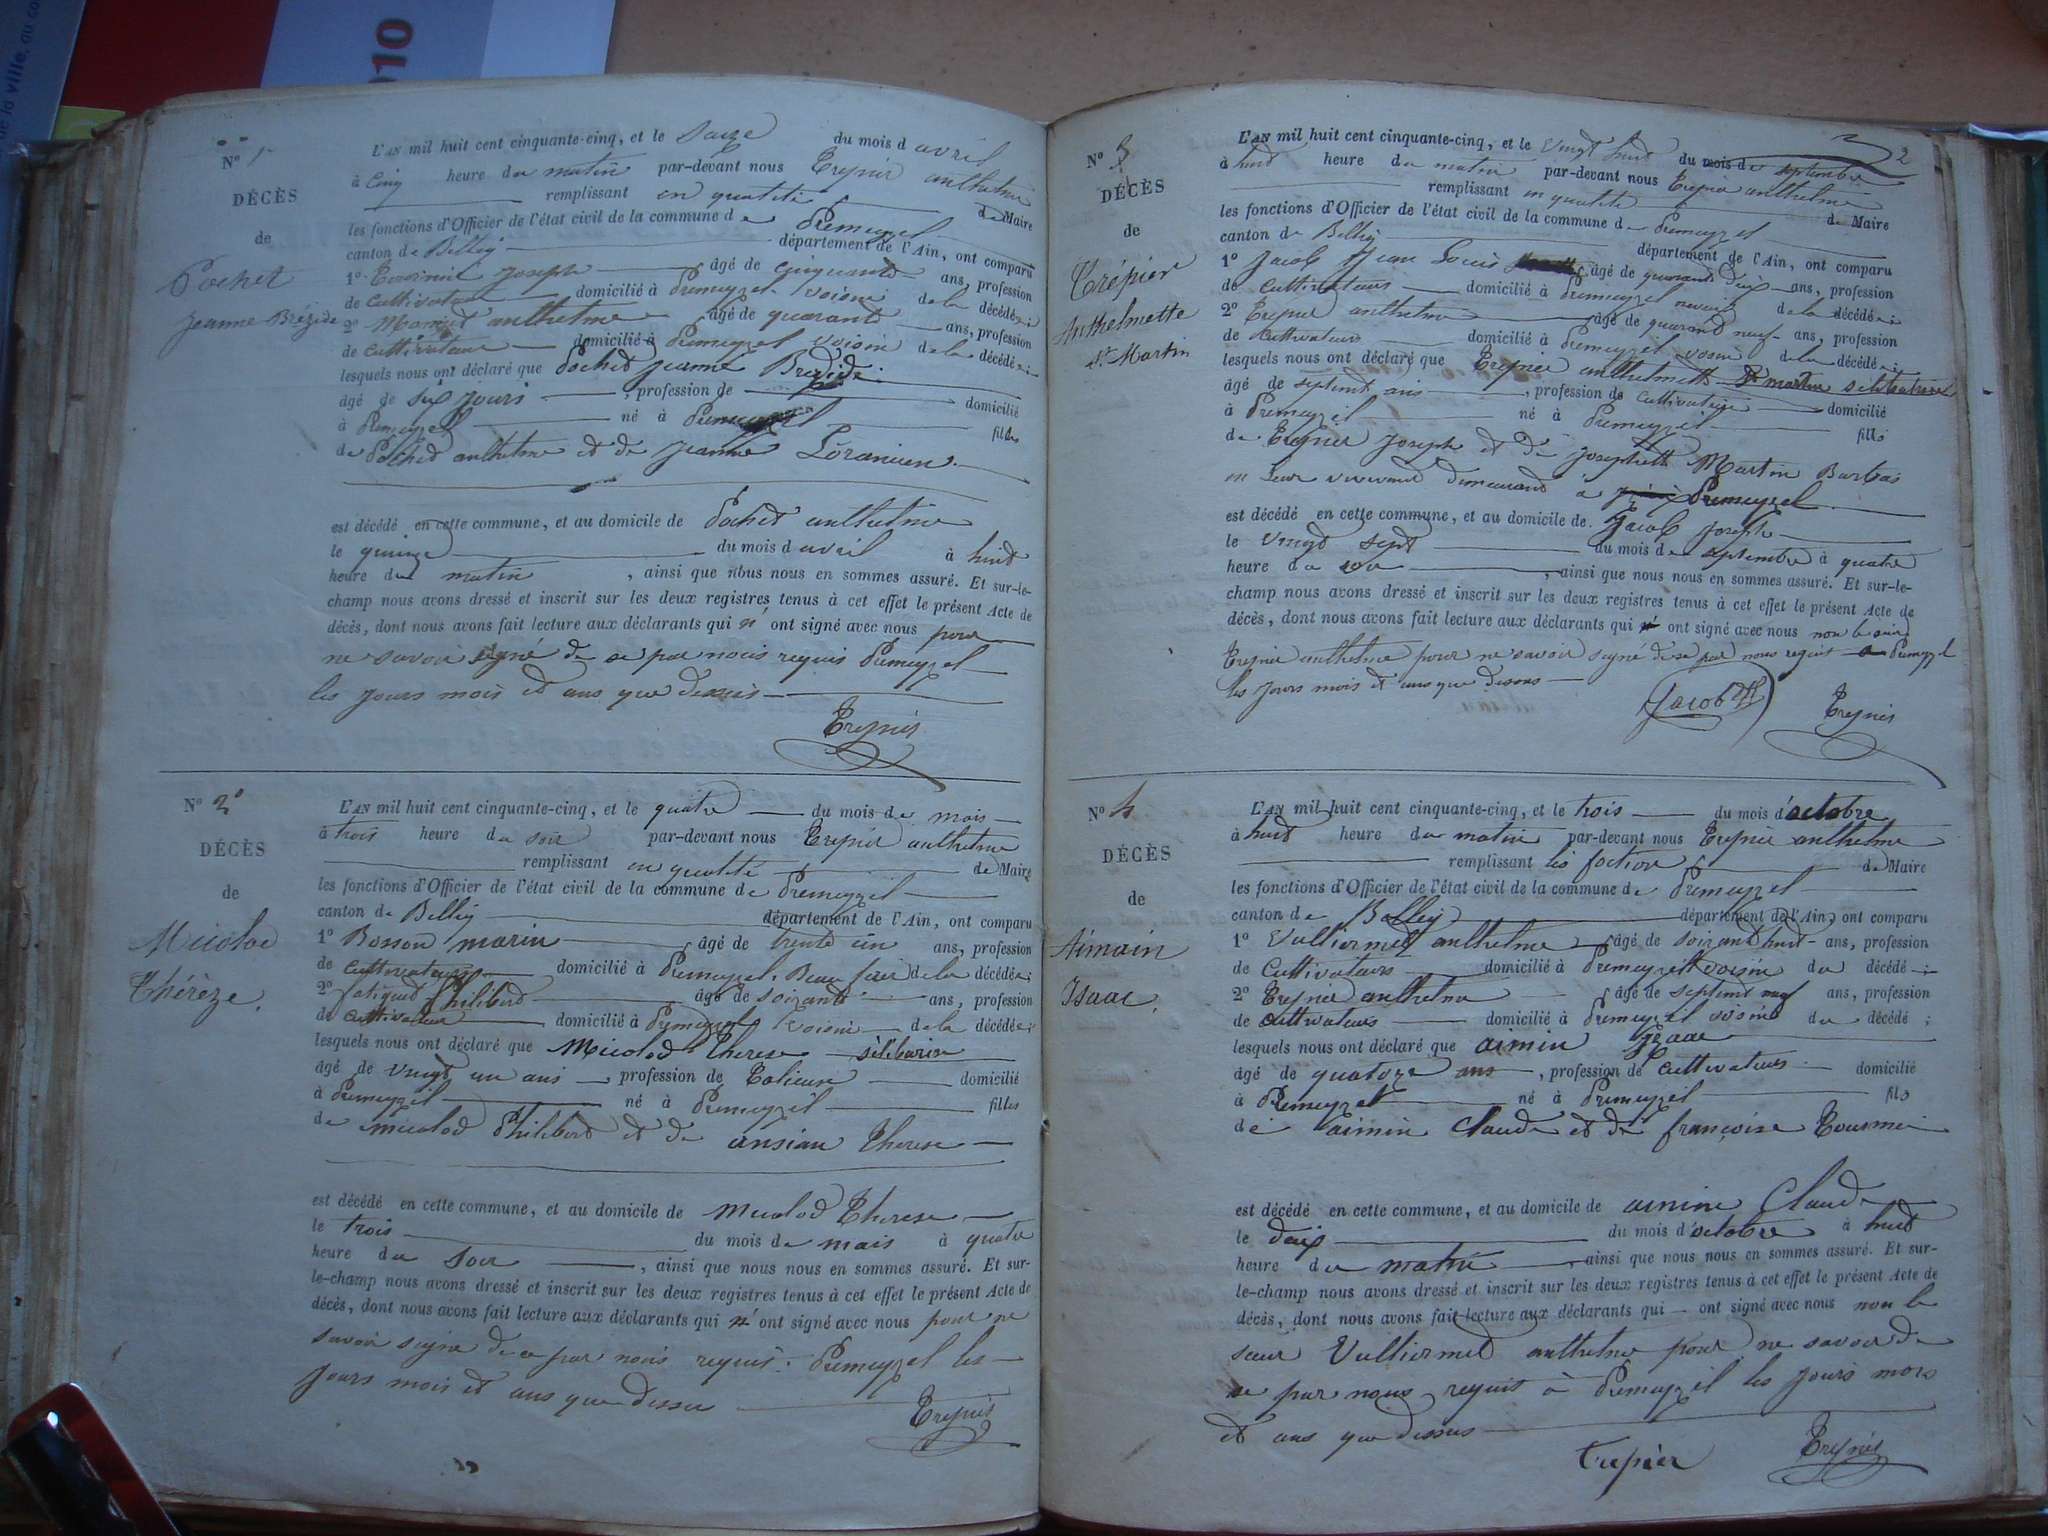 010
N° 1er
DÉCÈS
de
Pochet
Jeanne Brézide
L'AN mil huit cent cinquante-cinq, et le Saize du mois d avril
à Cinq heure du matin par-devant nous Trepier anthelme
remplissant en qualité de Maire
les fonctions d'Officier de l'état civil de la commune de Premeyzel
canton de Belley département de l'Ain, ont comparu
1° Joseph âgé de cinquante ans, profession
de Cultivateur domicilié à Premeyzel voisin de la décédée;
2° anthelme âgé de quarante ans, profession
de Cultivateur domicilié à Premeyzel voisin de la décédée;
lesquels nous ont déclaré que Pochet Jeanne Brezide
âgé de six jours, profession de domicilié
à Premeyzel né à Premeyzel fille
de Pochet anthelme et de Jeanne
est décédé en cette commune, et au domicile de Pochet anthelme
le quinze du mois d avril à huit
heure du matin, ainsi que nous nous en sommes assuré. Et sur-le-
champ nous avons dressé et inscrit sur les deux registres tenus à cet effet le présent Acte de
décès, dont nous avons fait lecture aux déclarants qui n'ont signé avec nous pour
ne savoir signé de ce par nous requis Premeyzel
les jours mois et ans que dessus
Trepier
N° 2°
DÉCÈS
de
Micolod
Thérèze.
L'AN mil huit cent cinquante-cinq, et le quatre du mois de mais
à trois heure du soir par-devant nous Trepier anthelme
remplissant en qualité de Maire
les fonctions d'Officier de l'état civil de la commune de Premeyzel
canton de Belley département de l'Ain, ont comparu
1° Bosson marin âgé de trente un ans, profession
de Cultivateurs domicilié à Premeyzel, Beau frair de la décédée;
2° Philiberd âgé de soixante ans, profession
de Cultivateur domicilié à Premeyzel voisin de la décédée;
lesquels nous ont déclaré que Micolod Therese
âgé de vingt un ans, profession de domicilié
à Premeyzel né à Premeyzel filles
de Micolod Philiberd et de ansian Therese
est décédé en cette commune, et au domicile de Micolod Therese
le trois du mois de mais à quatre
heure du Soir, ainsi que nous nous en sommes assuré. Et sur-
le-champ nous avons dressé et inscrit sur les deux registres tenus à cet effet le présent Acte de
décès, dont nous avons fait lecture aux déclarants qui n'ont signé avec nous pour ne
savoir signé de ce par nous requis. Premeyzel les
jours mois et ans que dessu
Trepier
2
N° 3
DÉCÈS
de
Trépier
Anthelmette
St Martin
L'AN mil huit cent cinquante-cinq, et le Vingt huit du mois de septembre
à huit heure du matin par-devant nous Trepier anthelme
remplissant en qualité de Maire
les fonctions d'Officier de l'état civil de la commune de Premeyzel
canton de Belley département de l'Ain, ont comparu
1° Jacob Jean Louis âgé de quarant dix ans, profession
de Cultivateurs domicilié à Premeyzel neveux de la décédée;
2° Trepier anthelme âgé de quarand neuf ans, profession
de Cultivateurs domicilié à Premeyzel voisin de la décédée;
lesquels nous ont déclaré que Trepier anthelmett St martin
âgé de septent ans, profession de Cultivatrice domicilié
à Premeyzel né à Premeyzel fille
de Trepier Joseph et de Josephett Martin Burbas
en leur vivevant demeurand a Premeyzel
est décédé en cette commune, et au domicile de Jacob Joseph
le Vingt sept du mois de septembre à quatre
heure du soir, ainsi que nous nous en sommes assuré. Et sur-le-
champ nous avons dressé et inscrit sur les deux registres tenus à cet effet le présent Acte de
décès, dont nous avons fait lecture aux déclarants qui ont signé avec nous non le
Trepier anthelme pour ne savoir signé de se par nous requit a Premeyzel
les jours mois et ans que dessus
Jacob Trepier
N° 4
DÉCÈS
de
Aimain
Isaac.
L'AN mil huit cent cinquante-cinq, et le trois du mois d'octobre
à huit heure du matin par-devant nous Trepier anthelme
remplissant les foction de Maire
les fonctions d'Officier de l'état civil de la commune de Premeyzel
canton de Belley département de l'Ain, ont comparu
1° Vulliermet anthelme âgé de soixant huit ans, profession
de Cultivateurs domicilié à Premeyzell voisin du décédé;
2° Trepier anthelme âgé de septent neuf ans, profession
de Cultivateurs domicilié à Premeyzel voisin du décédé;
lesquels nous ont déclaré que aimin Isaac
âgé de quatorze ans, profession de Cultivateurs domicilié
à Premeyzel né à Premeyzel fils
de aimin Claude et de françoise Tournier
est décédé en cette commune, et au domicile de aimin Claude
le deux du mois d'octobre à huit
heure du matin, ainsi que nous nous en sommes assuré. Et sur-
le-champ nous avons dressé et inscrit sur les deux registres tenus à cet effet le présent Acte de
décès, dont nous avons fait lecture aux déclarants qui ont signé avec nous non le
sieur Vulliermet anthelme pour ne savoir de
ce par nous requis à Premeyzel les jours mois
et ans que dessus
Trepier Trepier